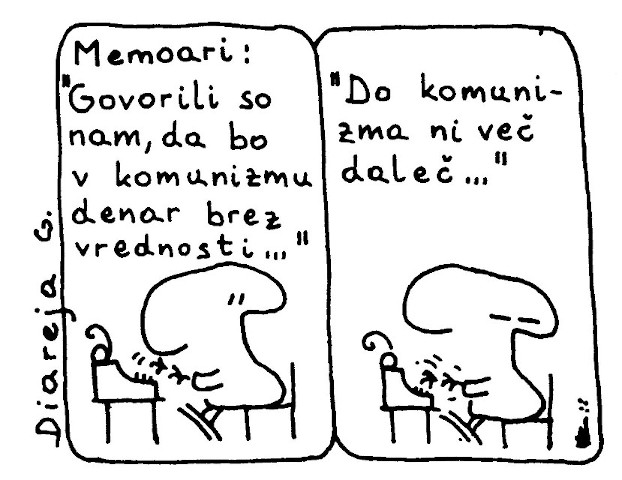 Memoari:
"Govorili so
nam, da bo
v komunizmu
denar brez
vrednosti..."
"Do komuni-
zma ni več
daleč..."
Diareja G.